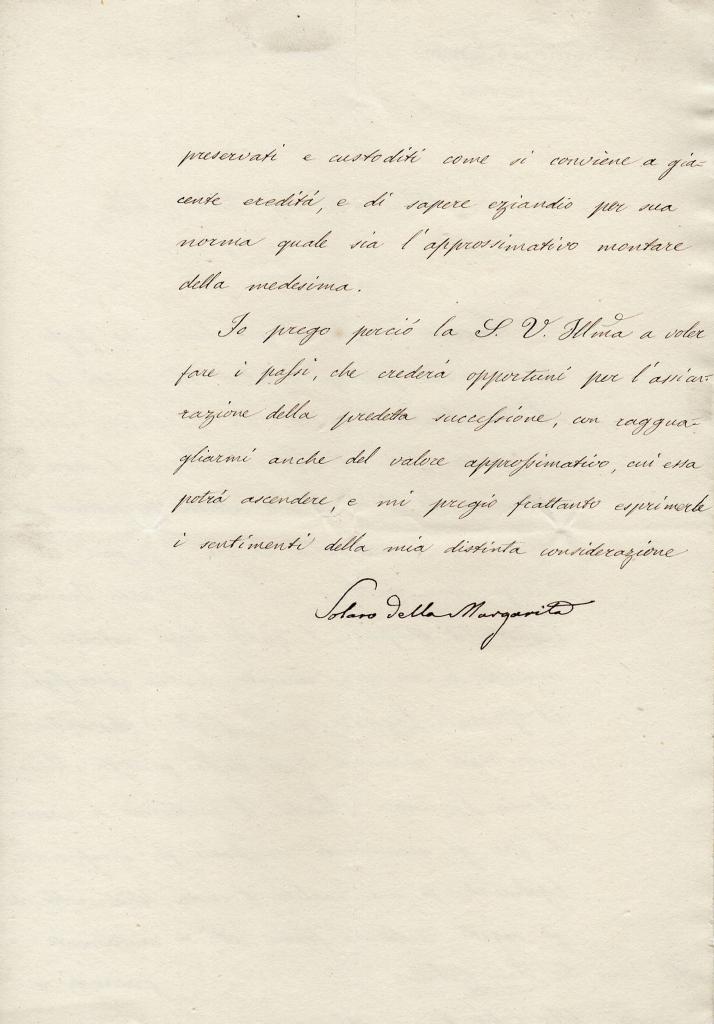 preservati e custoditi come si conviene a gia=
cente eredità, e di sapere eziandio per sua
norma quale sia l'approssimativo montare
della medesima.
Io prego perciò la S. V. Illma a voler
fare i passi, che crederà opportuni per l'assicu=
razione della predetta successione, con raggua=
gliarmi anche del valore approssimativo, cui essa
potrà ascendere, e mi pregio frattanto esprimerle
i sentimenti della mia distinta considerazione
Solaro della Margarita